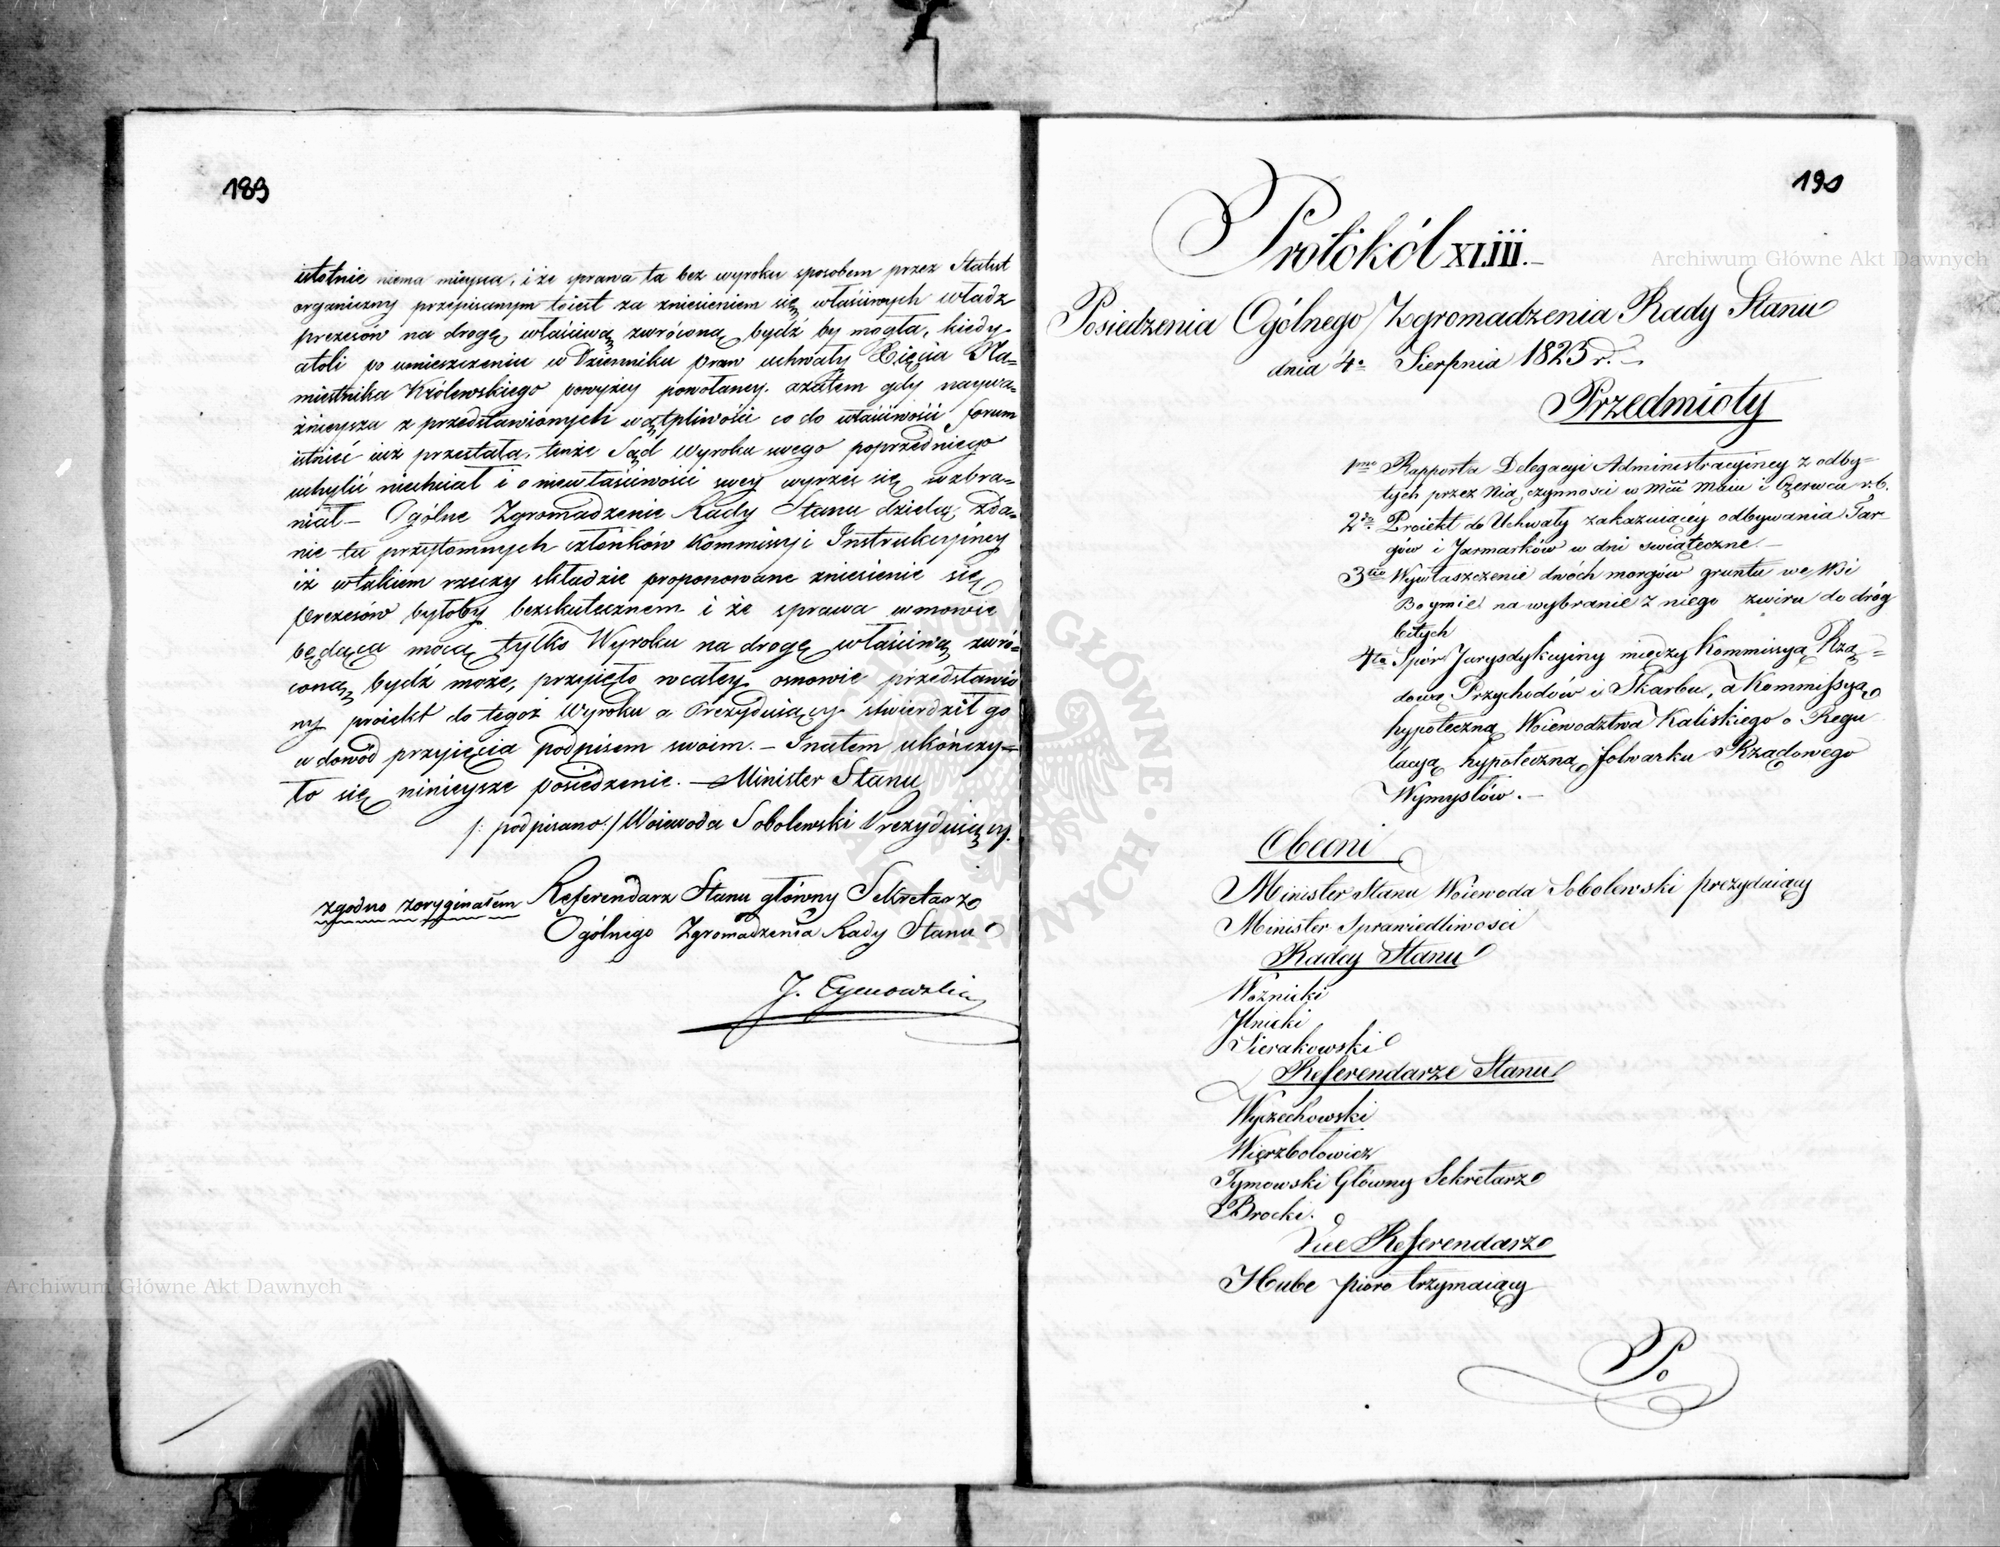 189
istotnie niema mieysca, i że sprawa ta bez wyroku sposobem przez Statut
organiczny przepisanym to iest za zniesieniem się właściwych władz
prezesów na drogę właściwą zwróconą bydź by mogła, kiedy
atoli po umieszczeniu w Dzienniku Praw uchwały Xięcia Na=
miestnika Królewskiego powyżey powołaney, azatem gdy naywa=
żnieysza z przedstawionych wątpliwości co do właściwości forum
istnieć iuż przestała, tenże Sąd Wyroku swego poprzedniego
uchylić niechciał i o niewłaściwości swey wyrzec się wzbra=
niał – Ogólne Zgromadzenie Rady Stanu dzieląc zda=
nie tu przytomnych członków Kommissyi Instrukcyiney
iż w takiem rzeczy składzie proponowane zniesienie się
Prezesów byłoby bezskutecznem i że sprawa w mowie
będąca mocą tylko Wyroku na drogę właściwą zwró=
coną bydź może, przyięło w całey osnowie przedstawio
ny proiekt do tegoż Wyroku a Prezyduiący stwierdził go
w dowód przyięcia podpisem swoim. – Na tem ukończy=
ło się ninieysze posiedzenie. – Minister Stanu
/: podpisano :/ Woiewoda Sobolewski Prezyduiący.
zgodno z oryginałem Referendarz Stanu główny Sekretarz
Ogólnego Zgromadzenia Rady Stanu
J. Tymowski
190
Protokół XLIII.–
Posiedzenia Ogólnego Zgromadzenia Rady Stanu
dnia 4. Sierpnia 1823 r. –
Przedmioty
1mo Rapporta Delegacyi Administracyiney z odby=
tych przez Nią czynności w Mcu Maiu i Czerwcu r. b.
2do Proiekt do Uchwały zakazuiącey odbywania Tar-
gów i Jarmarków w dni swiąteczne. –
3tio Wywłaszczenie dwóch morgów gruntu we Wsi
Boymie na wybranie z niego zwiru do dróg
bitych
4to Spór Jurysdykcyiny między Kommissyą Rzą=
dową Przychodów i Skarbu, a Kommissyą
hypoteczną Woiewodztwa Kaliskiego o Regu
lacyą hypoteczną folwarku Rządowego
Wymysłów. –
Obecni
Minister Stanu Woiewoda Sobolewski prezyduiący
Minister Sprawiedliwości
Radcy Stanu
Woźnicki
Jlnicki
Sierakowski
Referendarze Stanu
Wyczechowski
Wierzbołowicz
Tymowski Główny Sekretarz
Brocki.
Vice Referendarz
Hube pióro trzymaiący
Po
Archiwum Główne Akt Dawnych
Archiwum Główne Akt Dawnych